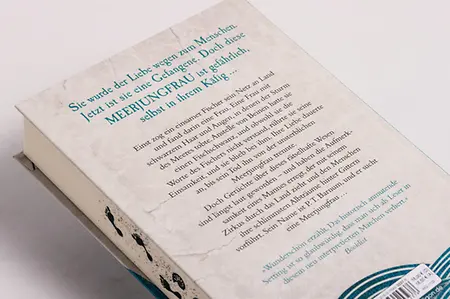 Sie wurde der Liebe wegen zum Menschen.
Jetzt ist sie eine Gefangene. Doch diese
MEERJUNGFRAU ist gefährlich,
selbst in ihrem Käfig …
Einst zog ein einsamer Fischer sein Netz an Land
und fand darin eine Frau. Eine Frau mit
schwarzem Haar und Augen, in denen der Sturm
des Meeres tobte. Anstelle von Beinen hatte sie
einen Fischschwanz, und obwohl sie die
Worte des Fischers nicht verstand, rührte sie seine
Einsamkeit, und sie blieb bei ihm. Ihre Liebe dauerte
bis an sein Tod ihn von der unsterblichen
Meerjungfrau trennte.
Doch Gerüchte über dieses rätselhafte Wesen
sind längst laut geworden – und haben die Aufmerk-
samkeit eines Mannes erregt, der mit seinem
Zirkus durch das Land zieht und den Menschen
ihre schlimmsten Albträume hinter Gittern
vorführt. Sein Name ist P. T. Barnum, und er sucht
eine Meerjungfrau …
»Wunderschön erzählt. Das historisch anmutende
Setting ist so glaubwürdig, dass man sich als Leser in
diesem neu interpretierten Märchen verliert.«
Booklist